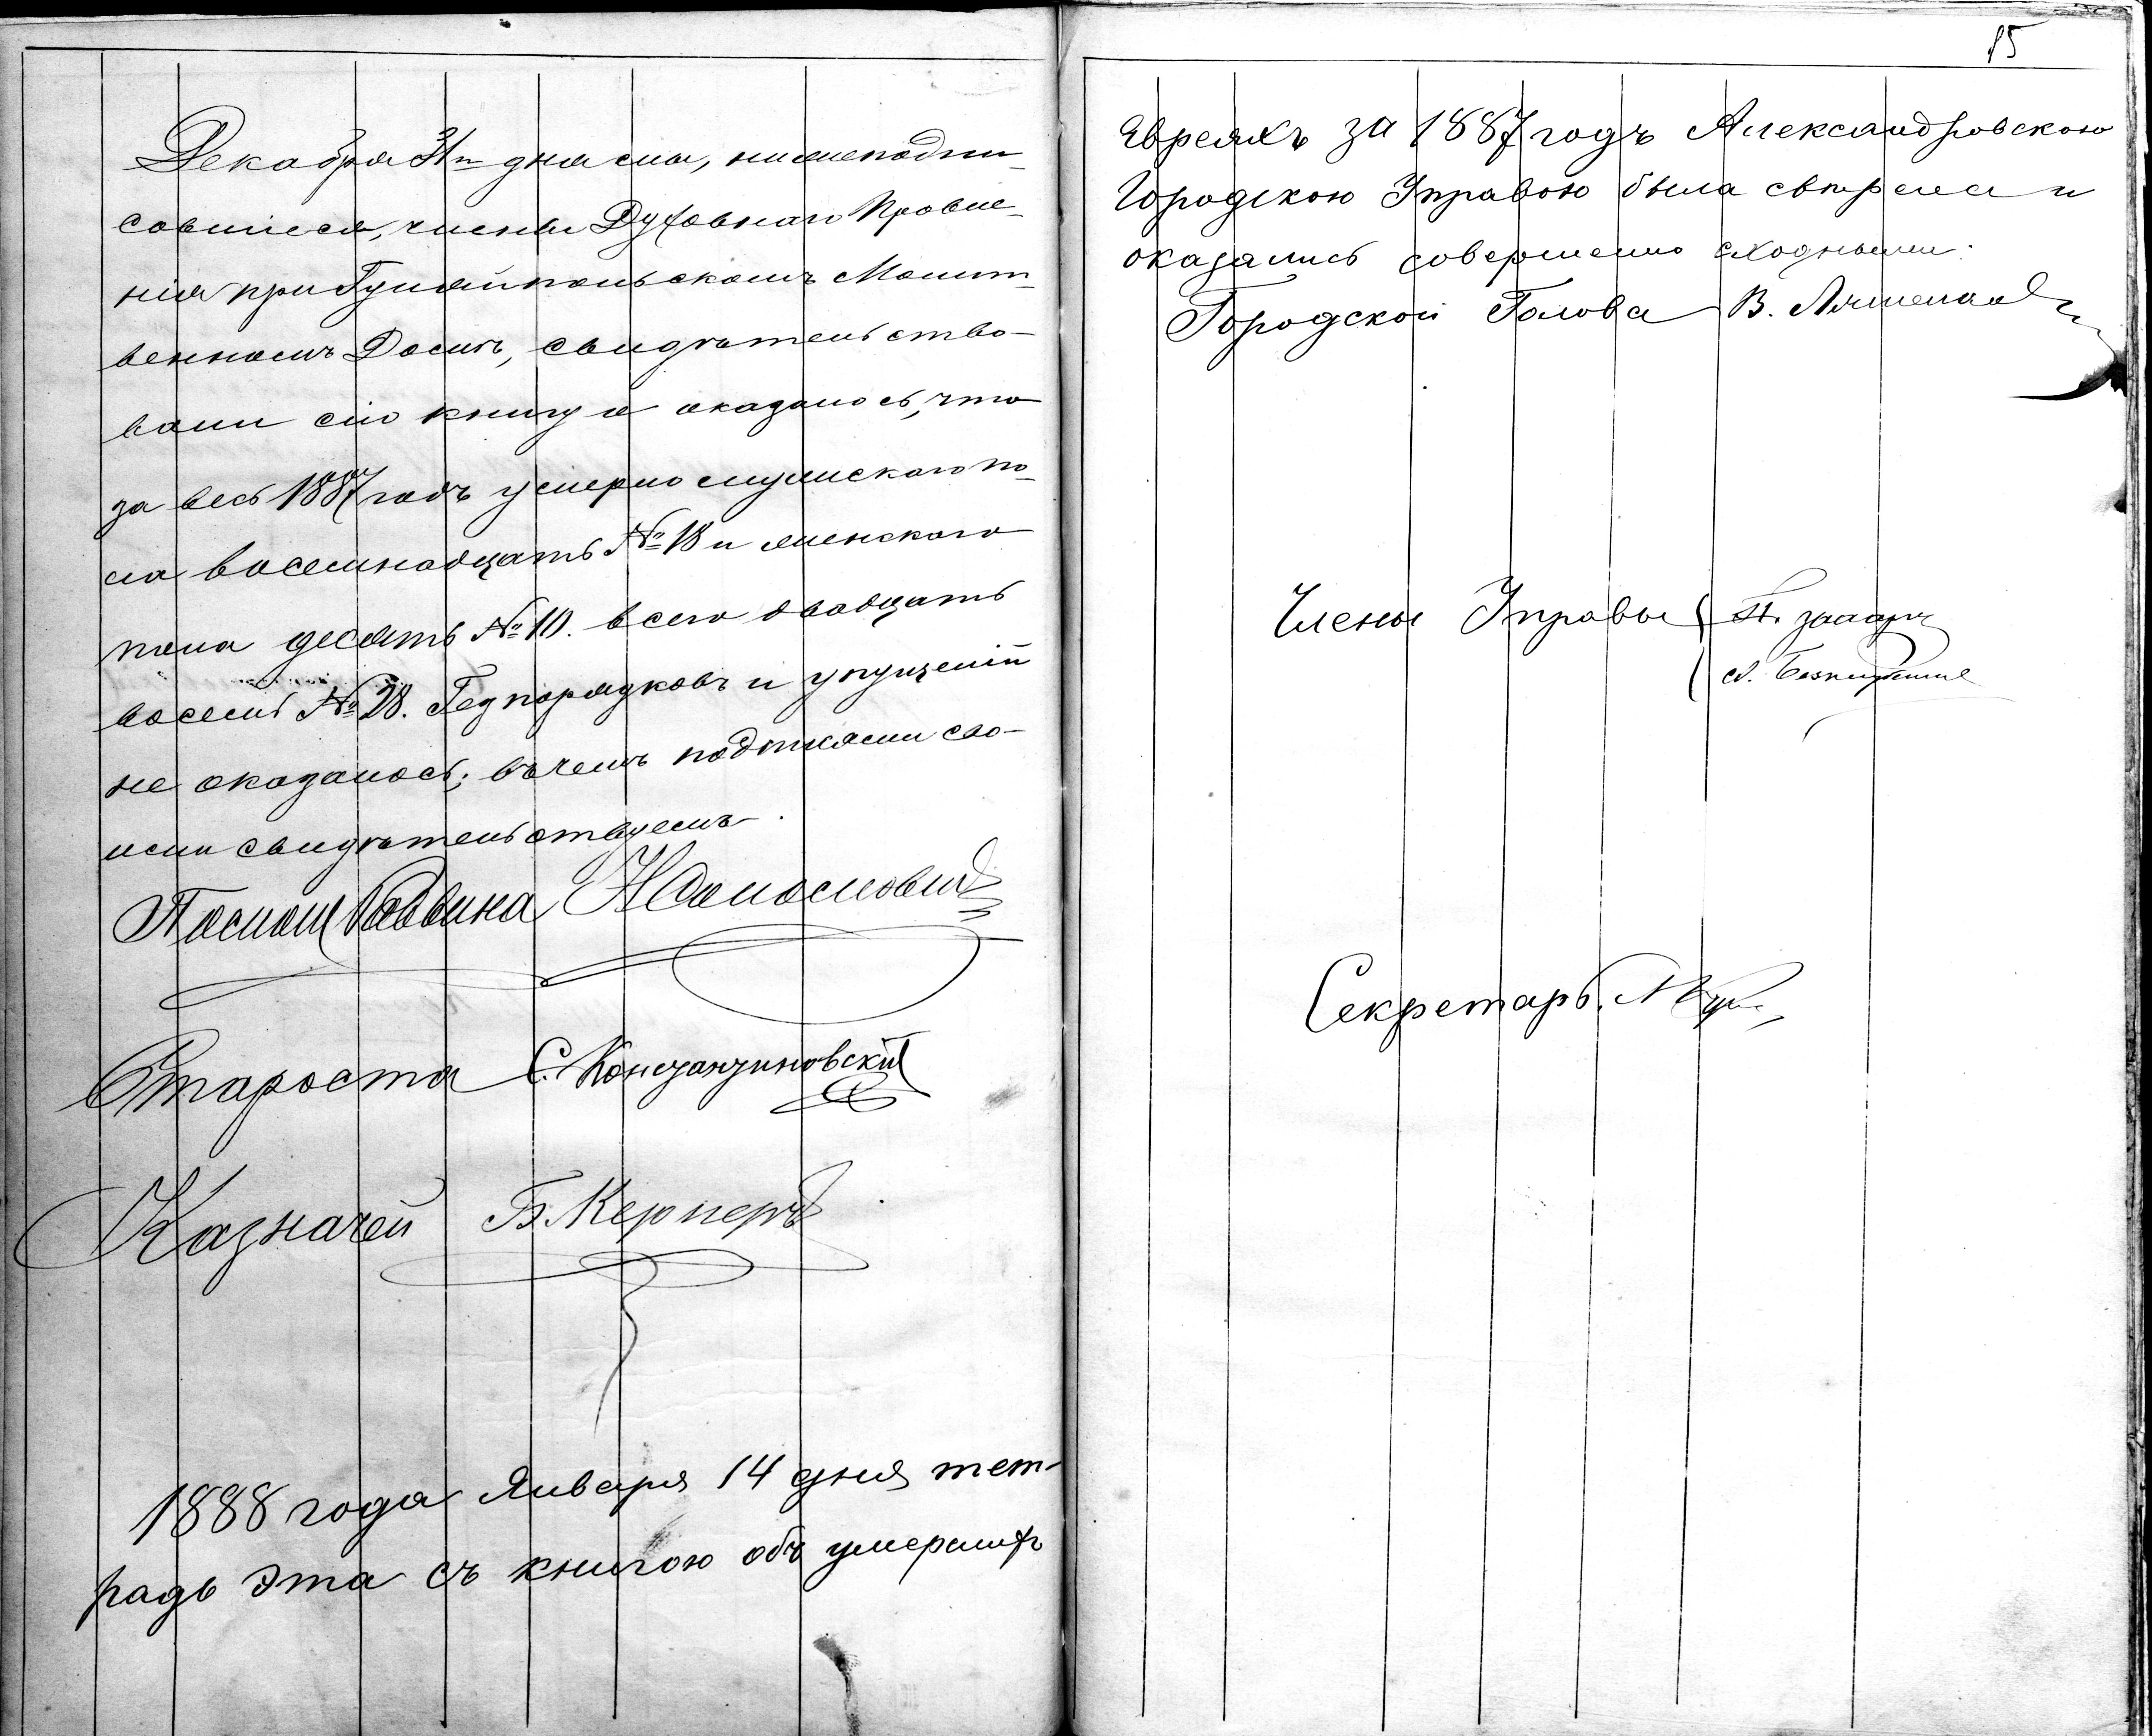 Декабря 31го дня мы, нижеподпи-
савшiеся, члены Духовнаго Правле-
нiя при Гуляйпольскомъ Молит-
венномъ Домѣ, свидѣтельство-
вали сiю книгу и оказалось, что
за весь 1887 годъ умерло мужскаго по-
ла восемнадцать № 18 и женскаго
пола десять № 10. всего двадцать
восемь № 28. Безпорядковъ и упущенiй
не оказалось; въ чемъ подписями сво-
ими свидѣтельствуемъ.
Помощ Раввина
Староста С. Константиновскiй
Казначей Б. Кернеръ
1888 года Января 14 дня тет-
радь эта съ книгою объ умершихъ
85
Евреяхъ за 1887 годъ Александровскою
Городскою Управою была свѣрена и
оказались совершенно сходными.
Городской Голова В.
Члены Управы
Секретарь